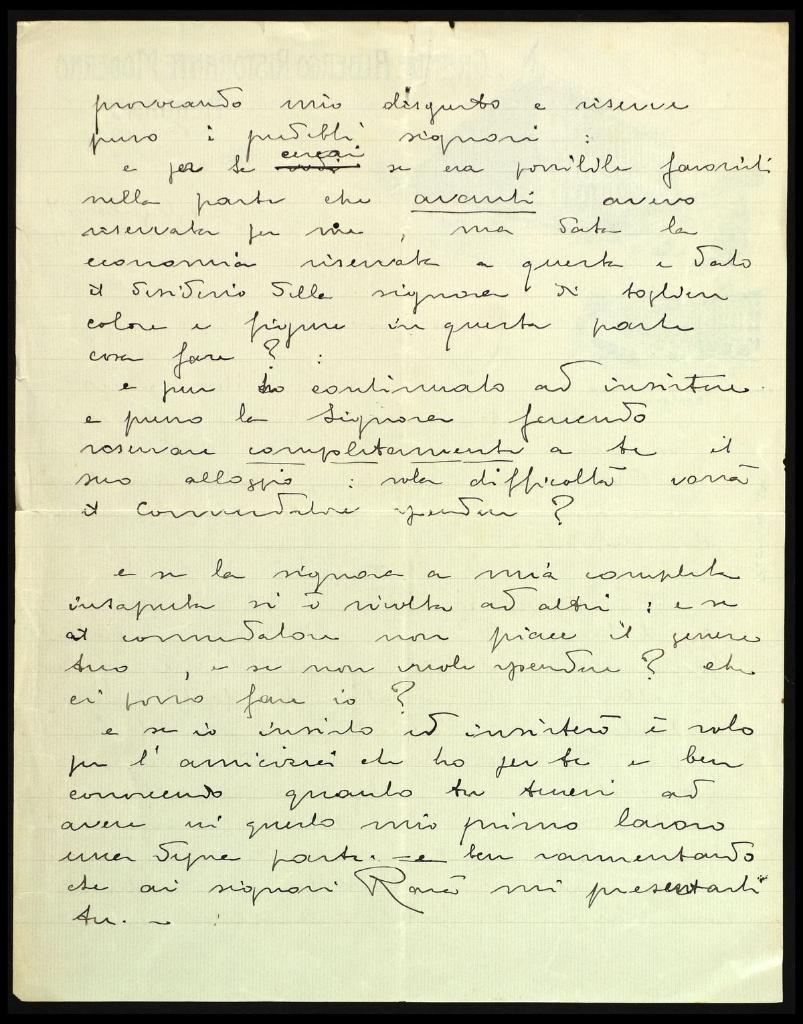 provocando mio disgusto e riserve
puro i predetti signori :
e per te cercai se era possibile favoristi
nella parte che avanti avevo
riservata per me, ma data la
economia riservata a questa e dato
il desiderio della signora di togliere
colore e figure in questa parte
cosa fare ? :
e pur ho continuato ad insistere
e presso la Signora facendo
riservare completamente a te il
suo alloggio : sola difficoltà vorrà
il Commendatore spendere ?
e se la signora a mia completa
insaputa si è rivolta ad altri : e se
al commendatore non piace il genere
tuo, e se non vuole spendere ? che
ci posso fare io ?
e se io insisto ed insisterò è solo
per l'amicizia che ho per te e ben
conoscendo quanto tu tenevi ad
avere in questo mio primo lavoro
una degna parte. - e ben rammentando
che ai signori Ravà mi presentasti
tu. -